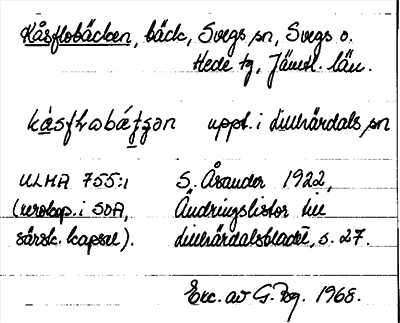 Kåsflobäcken, bäck, Svegs sn, Svegs o.
Hede tg, Jämtl. län.
uppt. i Lillhärdals sn
ULMA 755:1 S. Åsander 1922,
i SOA, Ändringslistor till
särsk. kapsel). Lillhärdalsbladet, s. 27.
Exc. av G. 1968.